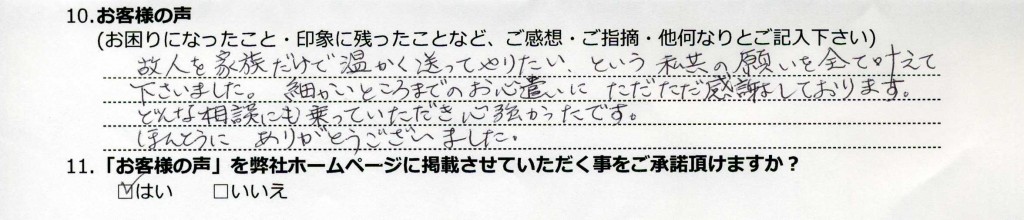 10.お客様の声
(お困りになったこと・印象に残ったことなど、ご感想・ご指摘・他何なりとご記入下さい)
故人を家族だけで温かく送ってやりたい、という私共の願いを全て叶えて
下さいました。細かいところまでのお心遣いにただただ感謝しております。
どんな相談にも乗っていただき心強かったです。
ほんとうにありがとうございました。
11.「お客様の声」を弊社ホームページに掲載させていただく事をご承諾頂けますか？
☑はい □いいえ